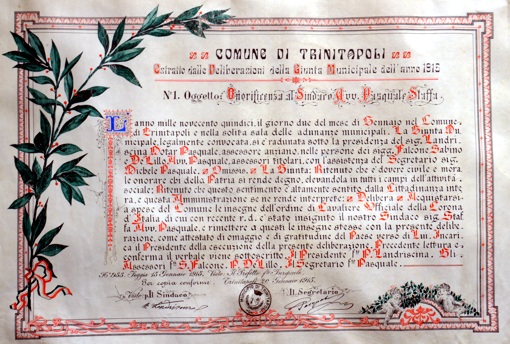 COMUNE DI TRINITAPOLI
Estratto dalle Deliberazioni della Giunta Municipale dell'anno 1915
N° 1. Oggetto: Onorificenza al Sindaco Avv. Pasquale Staffa
L'anno mille novecento quindici, il giorno due del mese di Gennaio nel Comune
di Trinitapoli e nella solita sala delle adunanze municipali. La Giunta Mu-
nicipale, legalmente convocata, si è radunata sotto la presidenza del sig. Landri-
scina Dotar Pasquale, assessore anziano, nelle persone dei sigg. Falcone Sabino
e De Lillo Avv. Pasquale, assessori titolari, con l'assistenza del Segretario sig.
Michele Pasquale. - Omissis. - La Giunta: Ritenuto che è dovere civile e mora-
le onorare chi della Patria si rende degno, elevandola in tutti i campi dell'attività
sociale; Ritenuto che questo sentimento è altamente sentito dalla Cittadinanza inte-
ra, e questa Amministrazione se ne rende interprete; Delibera Acquistarsi
a spese del Comune le insegne dell'ordine di Cavaliere Uffiziale della Corona
d'Italia, di cui con recente r. d. è stato insignito il nostro Sindaco sig. Staf-
fa Avv. Pasquale, e rimettere a questi le insegne stesse con la presente delibe-
razione, come attestato di omaggio e di gratitudine del Paese verso di Lui. Incari-
ca il Presidente della esecuzione della presente deliberazione. Precedente lettura e
conferma il verbale viene sottoscritto. Il Presidente f° P. Landriscina. Gli
Assessori f° S. Falcone, P. De Lillo. Il Segretario f° Pasquale.
Foggia 15 Gennaio 1915. Visto - Il Prefetto f°
Per copia conforme Trinitapoli, Gennaio 1915.
Visto: Il Sindaco Il Segretario